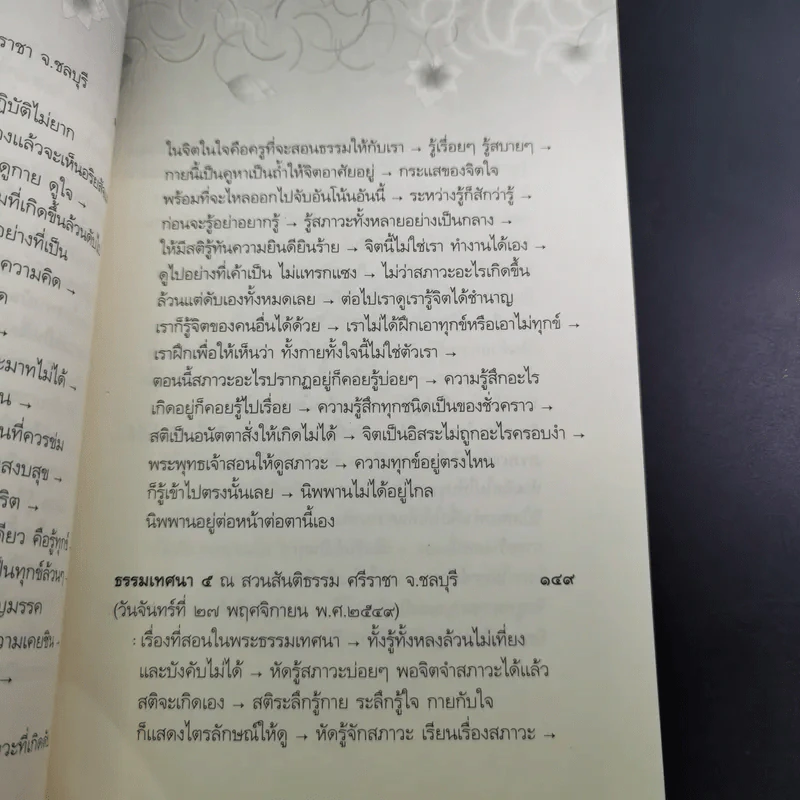 ราชา จ.ชลบุรี
ฏิบัติไม่ยาก
ดูกาย ดูใจ →
อย่างที่เป็น
ความคิด →
→
ะมาทไม่ได้ →
น →
นที่ควรข่ม
สงบสุข →
ริต →
ดียว คือรู้ทุกข์
ป็นทุกข์ล้วนๆ
ญมรรค
วามเคยชิน
→
ในจิตในใจคือครูที่จะสอนธรรมให้กับเรา → รู้เรื่อยๆ รู้สบายๆ →
กายนี้เป็นคูหาเป็นถ้ำให้จิตอาศัยอยู่ → กระแสของจิตใจ
พร้อมที่จะไหลออกไปจับอันโน้นอันนี้ → ระหว่างรู้ก็สักว่ารู้ →
ก่อนจะรู้อย่าอยากรู้ → รู้สภาวะทั้งหลายอย่างเป็นกลาง →
ให้มีสติรู้ทันความยินดียินร้าย → จิตนี้ไม่ใช่เรา ทำงานได้เอง →
ดูไปอย่างที่เค้าเป็น ไม่แทรกแซง → ไม่ว่าสภาวะอะไรเกิดขึ้น
ล้วนแต่ดับเองทั้งหมดเลย → ต่อไปเราดูเรารู้จิตได้ชำนาญ
เราก็รู้จิตของคนอื่นได้ด้วย → เราไม่ได้ฝึกเอาทุกข์หรือเอาไม่ทุกข์ →
เราฝึกเพื่อให้เห็นว่า ทั้งกายทั้งใจนี้ไม่ใช่ตัวเรา →
ตอนนี้สภาวะอะไรปรากฏอยู่ก็คอยรู้บ่อยๆ → ความรู้สึกอะไร
เกิดอยู่ก็คอยรู้ไปเรื่อย → ความรู้สึกทุกชนิดเป็นของชั่วคราว →
สติเป็นอนัตตาสั่งให้เกิดไม่ได้ → จิตเป็นอิสระไม่ถูกอะไรครอบงำ →
พระพุทธเจ้าสอนให้ดูสภาวะ → ความทุกข์อยู่ตรงไหน
ก็รู้เข้าไปตรงนั้นเลย → นิพพานไม่ได้อยู่ไกล
นิพพานอยู่ต่อหน้าต่อตานี้เอง
ธรรมเทศนา ๕ ณ สวนสันติธรรม ศรีราชา จ.ชลบุรี ๑๔๙
(วันจันทร์ที่ ๒๗ พฤศจิกายน พ.ศ.๒๕๔๙)
: เรื่องที่สอนในพระธรรมเทศนา → ทั้งรู้ทั้งหลงล้วนไม่เที่ยง
และบังคับไม่ได้ → หัดรู้สภาวะบ่อยๆ พอจิตจำสภาวะได้แล้ว
สติจะเกิดเอง → สติระลึกรู้กาย ระลึกรู้ใจ กายกับใจ
ก็แสดงไตรลักษณ์ให้ดู → หัดรู้จักสภาวะ เรียนเรื่องสภาวะ →